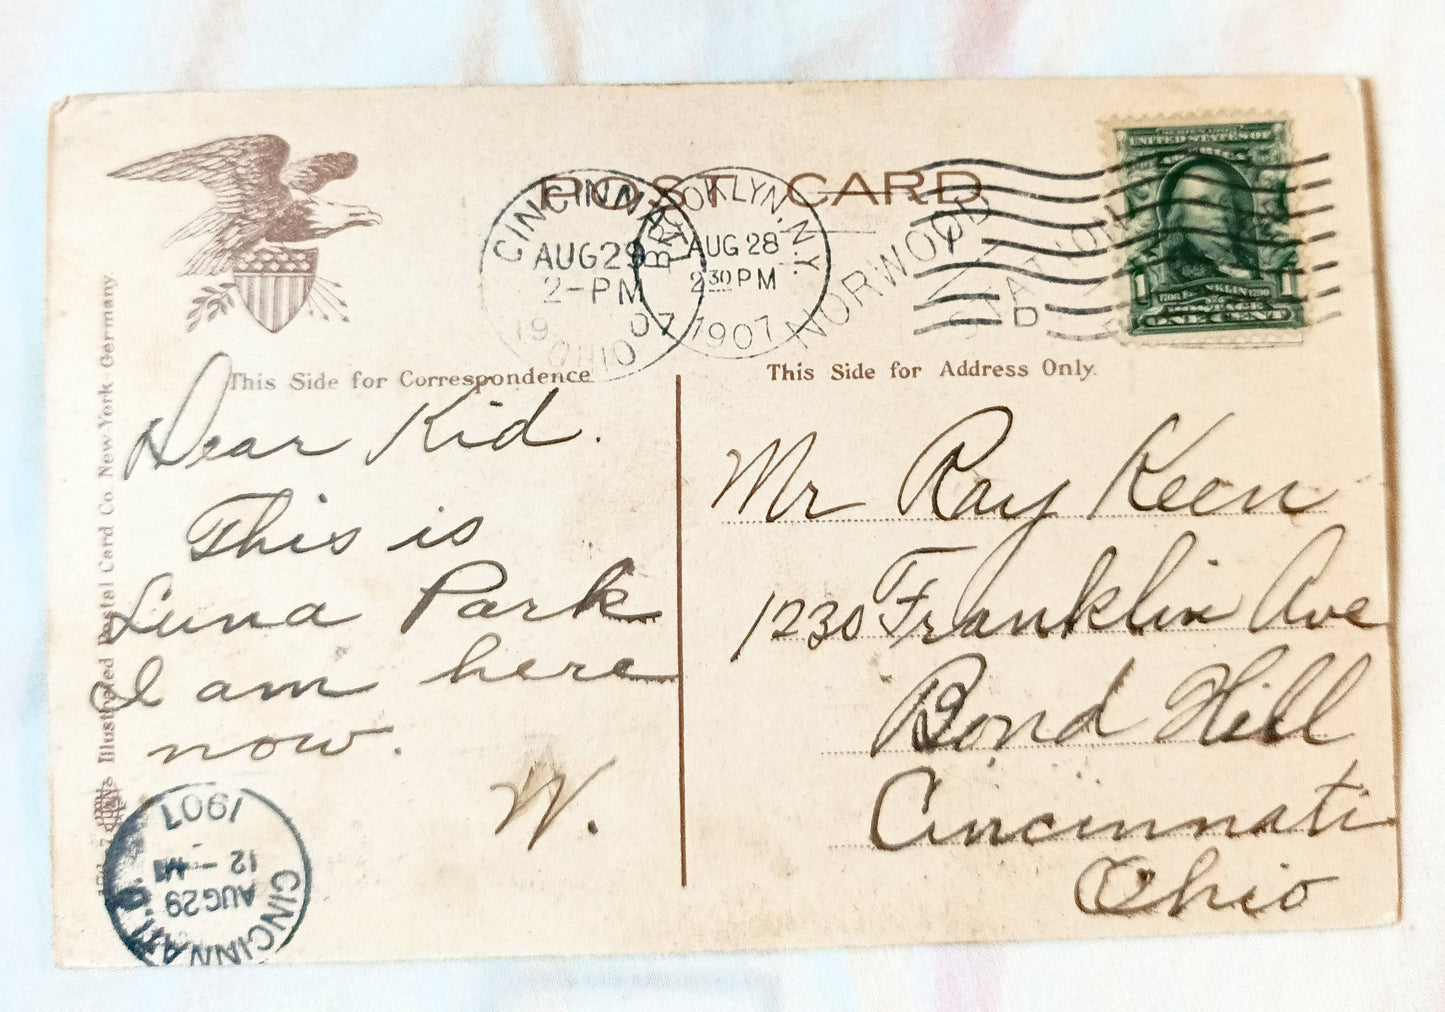 POST CARD
CINCINNATI
AUG 29
2-PM
1907
OHIO
BROOKLYN, N.Y.
AUG 28
2 30 PM
1907
NORWOOD
STATION
D
SERIES 1902
UNITED STATES OF AMERICA
1 FRANKLIN 1
1706 1790
POSTAGE
ONE CENT
This Side for Correspondence
This Side for Address Only.
Dear Kid.
This is
Luna Park
I am here
now.
W.
Mr Ray Keen
1230 Franklin Ave
Bond Hill
Cincinnati
Ohio
Illustrated Postal Card Co. New York Germany
CINCINNATI, O.
AUG 29
12-M
1907